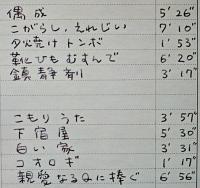 偶成 5' 26"
こがらし えれじい 7' 10"
夕焼けトンボ 1' 53"
靴ひもむすんで 6' 20"
鎮静剤 3' 17"
こもりうた 3' 57"
下宿屋 5' 30"
白い家 3' 31"
コオロギ 1' 17"
親愛なるQに捧ぐ 6' 56"